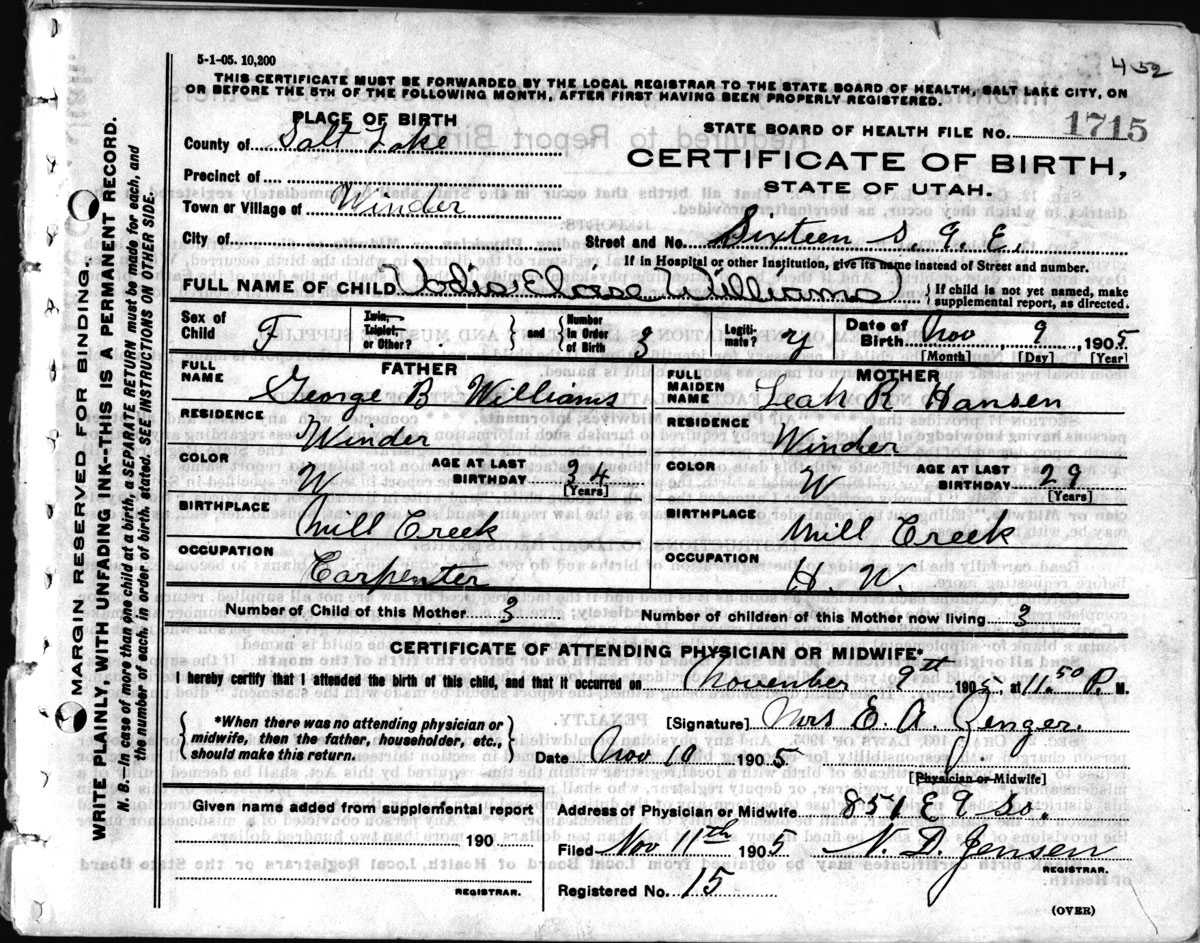 5-1-05. 10,200
452
THIS CERTIFICATE MUST BE FORWARDED BY THE LOCAL REGISTRAR TO THE STATE BOARD OF HEALTH, SALT LAKE CITY, ON
OR BEFORE THE 5TH OF THE FOLLOWING MONTH, AFTER FIRST HAVING BEEN PROPERLY REGISTERED.
MARGIN RESERVED FOR BINDING.
WRITE PLAINLY, WITH UNFADING INK--THIS IS A PERMANENT RECORD.
N. B.—In case of more than one child at a birth, a SEPARATE RETURN must be made for each, and
the number of each, in order of birth, stated. SEE INSTRUCTIONS ON OTHER SIDE.
PLACE OF BIRTH
STATE BOARD OF HEALTH FILE NO. 1715
County of Salt Lake
CERTIFICATE OF BIRTH,
Precinct of
STATE OF UTAH.
Town or Village of Winder
City of
Street and No. Sixteen S. 9. E.
If in Hospital or other Institution, give its name instead of Street and number.
FULL NAME OF CHILD Eloise Williams
If child is not yet named, make
supplemental report, as directed.
Sex of Child F
Twin, Triplet, or Other?
and Number in Order of Birth 3
Legitimate? y
Date of Birth Nov 9 1905
[Month] [Day] [Year]
FATHER
MOTHER
FULL NAME George B Williams
FULL MAIDEN NAME Leah R Hansen
RESIDENCE Winder
RESIDENCE Winder
COLOR W AGE AT LAST BIRTHDAY 34 [Years]
COLOR W AGE AT LAST BIRTHDAY 29 [Years]
BIRTHPLACE Mill Creek
BIRTHPLACE Mill Creek
OCCUPATION Carpenter
OCCUPATION H. W.
Number of Child of this Mother 3
Number of children of this Mother now living 3
CERTIFICATE OF ATTENDING PHYSICIAN OR MIDWIFE*
I hereby certify that I attended the birth of this child, and that it occurred on November 9th 1905, at 11.50 P. M.
*When there was no attending physician or
midwife, then the father, householder, etc.,
should make this return.
[Signature] Mrs E. A. Zenger.
Date Nov 10 1905
[Physician or Midwife]
Given name added from supplemental report
190
REGISTRAR.
Address of Physician or Midwife 851 E 9 So.
Filed Nov 11th 1905 N. D. Jensen
REGISTRAR.
Registered No. 15
(OVER)